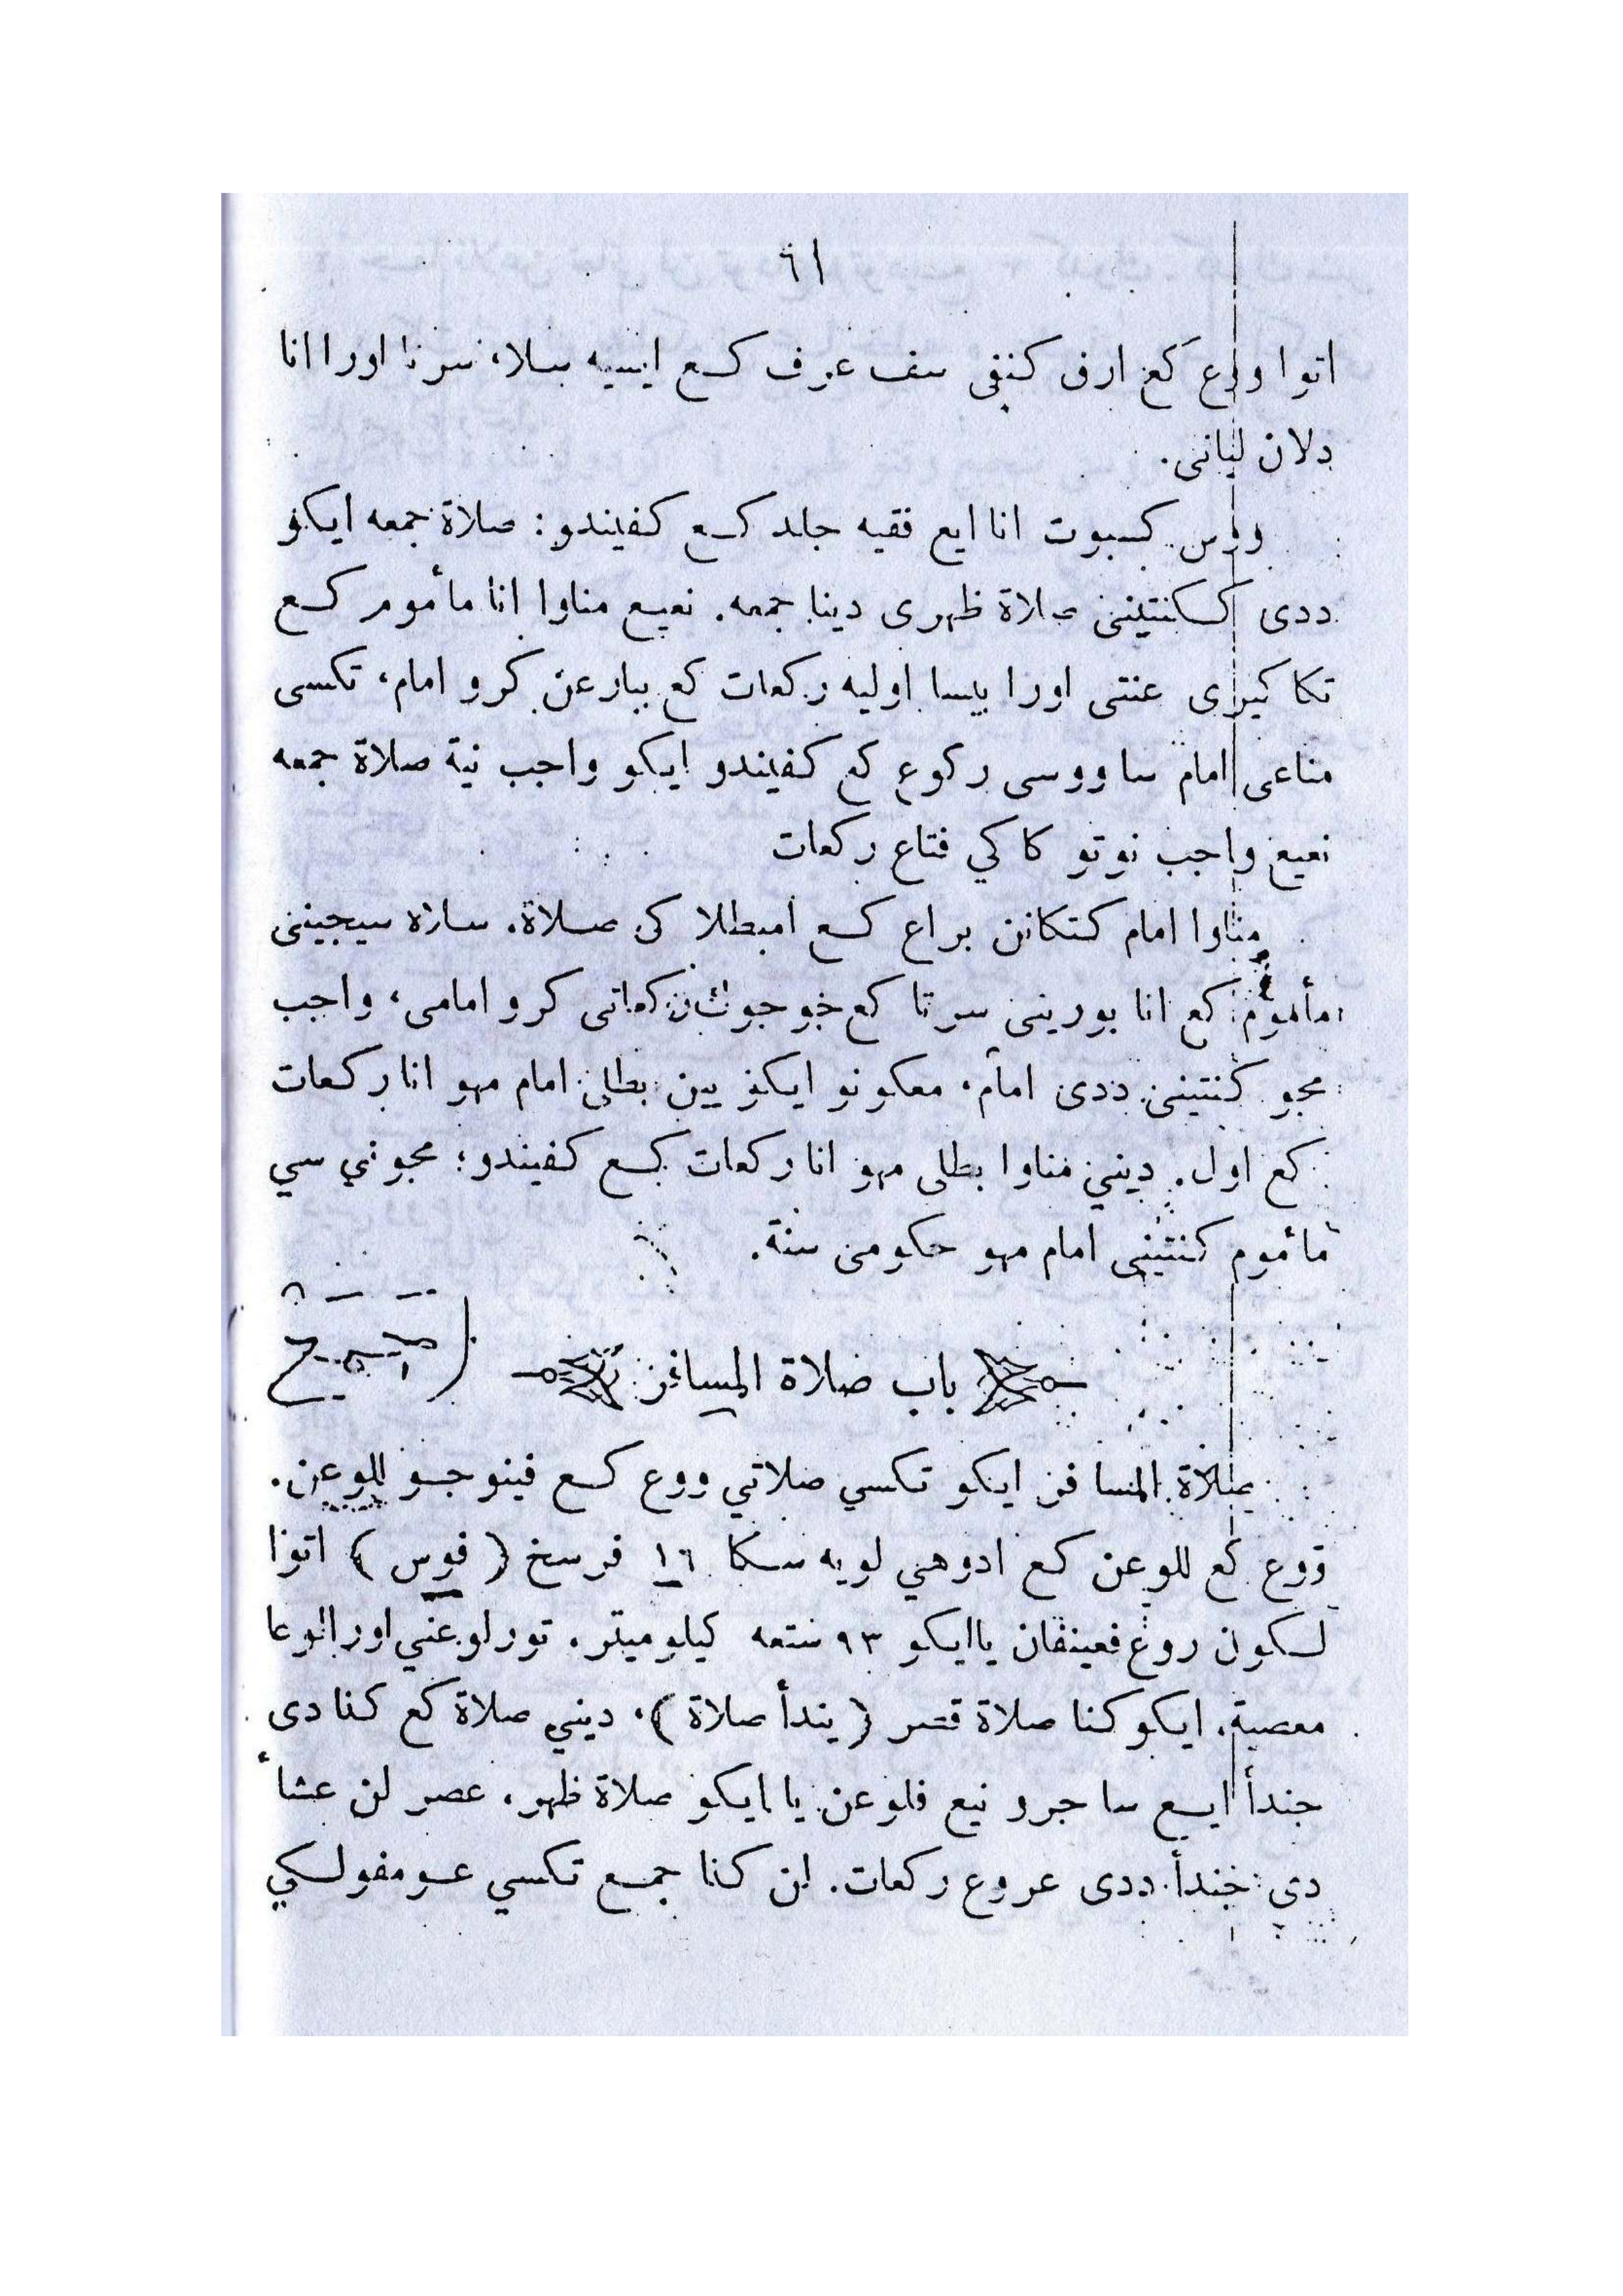 ٦١
اتوا ووع كع ارف كنفى سف عرف كع ايسيه سلا، سرتا اورا انا
دلان ليانى.
ووس كسبوت انا ايع فقيه جلد كع كفيندو: صلاة جمعه ايكو
ددى كسكنتيننى صلاة ظهرى دينا جمعه. نعيع مناوا انا مأموم كع
تكا كيرى عنتى اورا بيسا اوليه ركعات كع ببارعن كرو امام، تكسى
مناعى امام سا ووسى ركوع كع كفيندو ايكو واجب نية صلاة جمعه
نعيع واجب نوتو كاكي فتاع ركعات
مناوا امام كتكانن براع كع امبطلا كى صلاة. سازه سيجينى
مأموم كع انا بورينى سرتا كع جوجوك ركعاتى كرو امامى، واجب
مجو كنتينى ددى امام. معكونو ايكو يين بطلى امام مهو انا ركعات
كع اول. دينيَ مناوا بطلى مهو انا ركعات كع كفيندو؛ مجوني سي
مأموم كنتينى امام مهو حكومى سنة.
باب صلاة المسافر
صلاة المسافر ايكو تكسي صلاتي ووع كع فينوجو للوعن.
ووع كع للوعن كع ادوهي لويه سكا ١٦ فرسخ (فوس) اتوا
لكون روع فعينفان يا ايكو ٩٣ ستعه كيلوميتر. تور لوعني اورا لوعا
معصية. ايكو كنا صلاة قصر (يندأ صلاة)، ديني صلاة كع كنا دى
جندأ ايع سا جرو نيع فلوعن يا ايكو صلاة ظهر، عصر لن عشأ
دي جندأ ددى عروع ركعات. لن كنا جمع تكسي عومفولكي